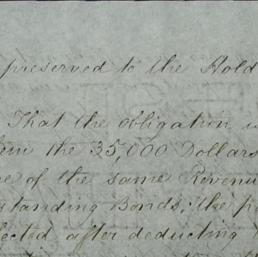 preserved to the Hold
That the obligation is
the 35,000 Dollars
of the same Revenu
standing Bonds; the p
lected after deducting